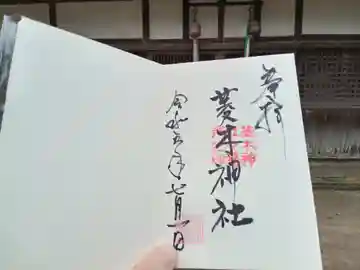 奉拝
菱木神社
令和五年七月一日